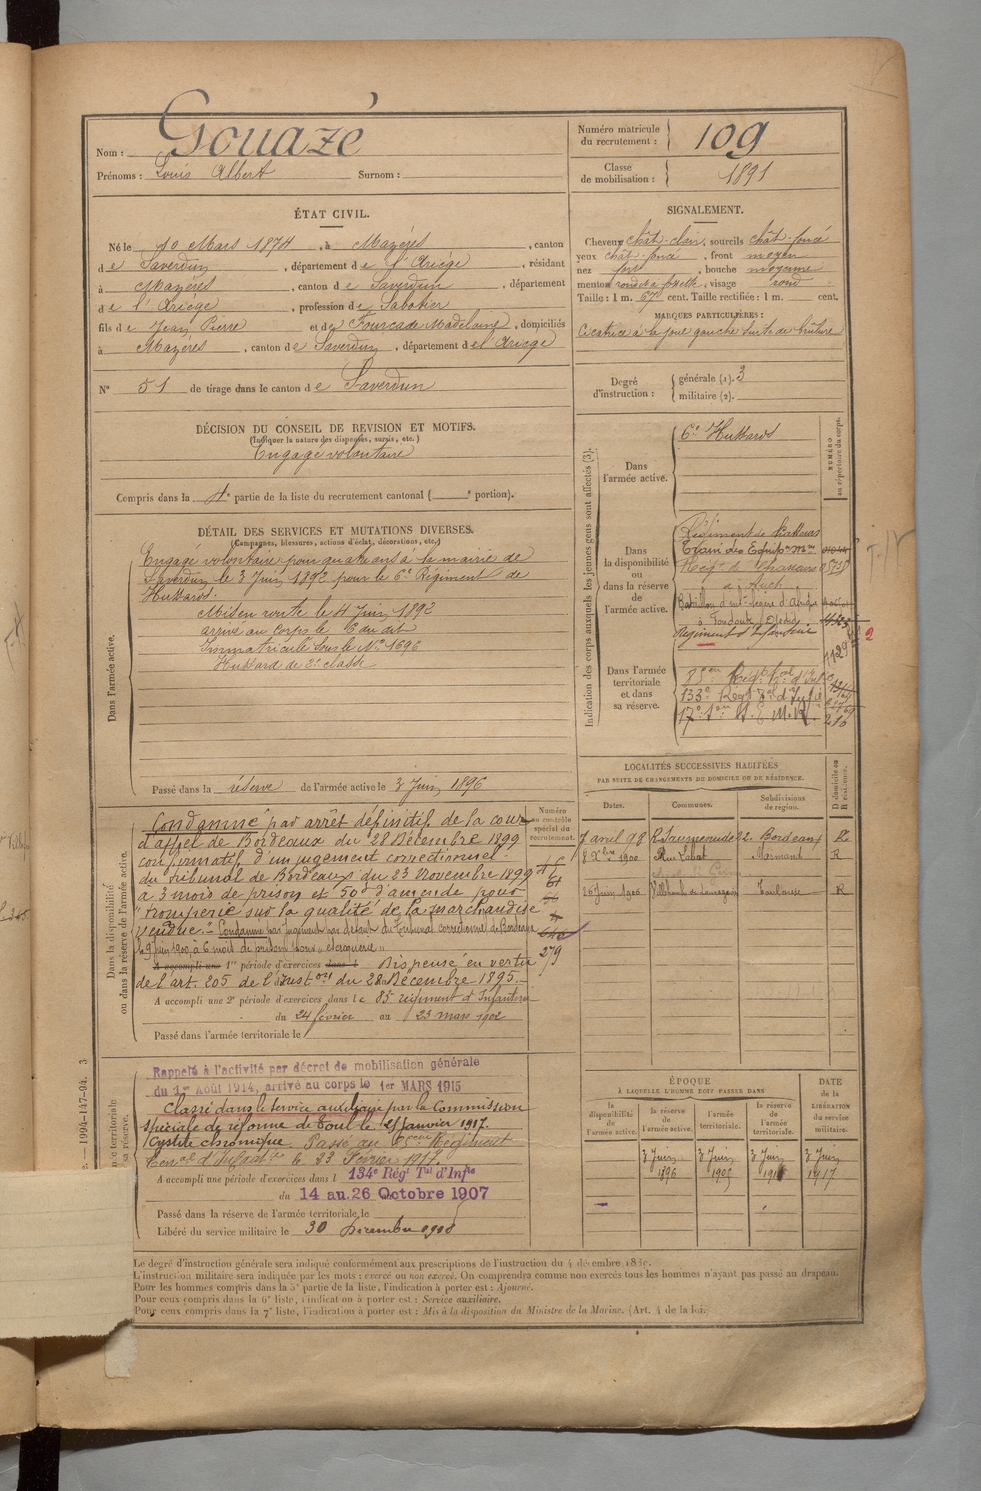 Nom : Gouazé
Prénoms : Louis Albert Surnom :
Numéro matricule du recrutement : 109
Classe de mobilisation : 1891
ÉTAT CIVIL.
Né le 10 Mars 1874, à Mazères, canton
de Saverdun, département de l'Ariège, résidant
à Mazères, canton de Saverdun, département
de l'Ariège, profession de Sabotier
fils de Jean Pierre et de Fourcade Madelaine, domiciliés
à Mazères, canton de Saverdun, département de l'Ariège
N° 51 de tirage dans le canton de Saverdun
SIGNALEMENT.
Cheveux chât-clair, sourcils chât-foncé
yeux chât-foncé, front moyen
nez fort, bouche moyenne
menton rond à fossette, visage rond
Taille : 1 m. 67 cent. Taille rectifiée : 1 m. cent.
MARQUES PARTICULIÈRES :
Cicatrice à la joue gauche suite de brûlure
Degré d'instruction : générale (1). 3
militaire (2).
DÉCISION DU CONSEIL DE REVISION ET MOTIFS.
(Indiquer la nature des dispenses, sursis, etc.)
Engagé volontaire
Compris dans la 4e partie de la liste du recrutement cantonal ( e portion).
DÉTAIL DES SERVICES ET MUTATIONS DIVERSES.
(Campagnes, blessures, actions d'éclat, décorations, etc.)
Dans l'armée active.
Engagé volontaire pour quatre ans à la mairie de
Saverdun le 3 Juin 1892 pour le 6e Régiment de
Hussards.
Mis en route le 4 Juin 1892
arrivé au corps le 6 du dit
Immatriculé sous le N° 1696
Hussard de 2e classe
Passé dans la réserve de l'armée active le 3 Juin 1896
Dans la disponibilité ou dans la réserve de l'armée active.
Numéro au contrôle spécial du recrutement.
Condamné par arrêt définitif de la cour
d'appel de Bordeaux du 28 Décembre 1899
confirmatif d'un jugement correctionnel
du tribunal de Bordeaux du 23 Novembre 1899
à 3 mois de prison et 50f d'amende pour
"tromperie sur la qualité de la marchandise
vendue." Condamné par jugement par défaut du Tribunal correctionnel de Bordeaux
le 9 Juin 1900, à 6 mois de prison pour "escroquerie"
279
A accompli une 1re période d'exercices dans l Dispensé en vertu
de l'art. 205 de l'Inston du 28 Décembre 1895.
A accompli une 2e période d'exercices dans le 83e régiment d'Infanterie
du 24 février au 23 mars 1902
Passé dans l'armée territoriale le
Rappelé à l'activité par décret de mobilisation générale
du 1er Août 1914, arrivé au corps le 1er MARS 1915
Classé dans le service auxiliaire par la Commission
spéciale de réforme de Toul le 25 janvier 1917.
Cystite chronique. Passé au Régiment
d'Infantie le 23 Février 1917.
A accompli une période d'exercices dans l 134e Régt Tal d'Infie
du 14 au 26 Octobre 1907
Passé dans la réserve de l'armée territoriale le
Libéré du service militaire le 30 Décembre 1918
Indication des corps auxquels les jeunes gens sont affectés (3).
NUMÉRO au répertoire du corps.
Dans l'armée active.
6e Hussards
Dans la disponibilité ou dans la réserve de l'armée active.
Train des Equip. Mres
Régt de Chasseurs
à Auch
Bataillon d'Inf. légère d'Afrique
Régiment d'Infanterie
2
Dans l'armée territoriale et dans sa réserve.
133e Regt Tal d'Infie
LOCALITÉS SUCCESSIVES HABITÉES
PAR SUITE DE CHANGEMENTS DE DOMICILE OU DE RÉSIDENCE.
Dates. Communes. Subdivisions de région. D domicile ou R résidence.
7 avril 98 Bordeaux
8 Xbre 1900 Marmande R
26 Juin 1906 Toulouse R
ÉPOQUE
À LAQUELLE L'HOMME DOIT PASSER DANS
DATE de la LIBÉRATION du service militaire.
la disponibilité de l'armée active. la réserve de l'armée active. l'armée territoriale. la réserve de l'armée territoriale.
3 Juin 1896 3 Juin 1905 3 Juin 3 Juin 1917
Le degré d'instruction générale sera indiqué conformément aux prescriptions de l'instruction du 4 décembre 1889.
L'instruction militaire sera indiquée par les mots : exercé ou non exercé. On comprendra comme non exercés tous les hommes n'ayant pas passé au drapeau.
Pour les hommes compris dans la 5e partie de la liste, l'indication à porter est : Ajourné.
Pour ceux compris dans la 6e liste, l'indication à porter est : Service auxiliaire.
Pour ceux compris dans la 7e liste, l'indication à porter est : Mis à la disposition du Ministre de la Marine. (Art. 4 de la loi.
1994-147-94. 3